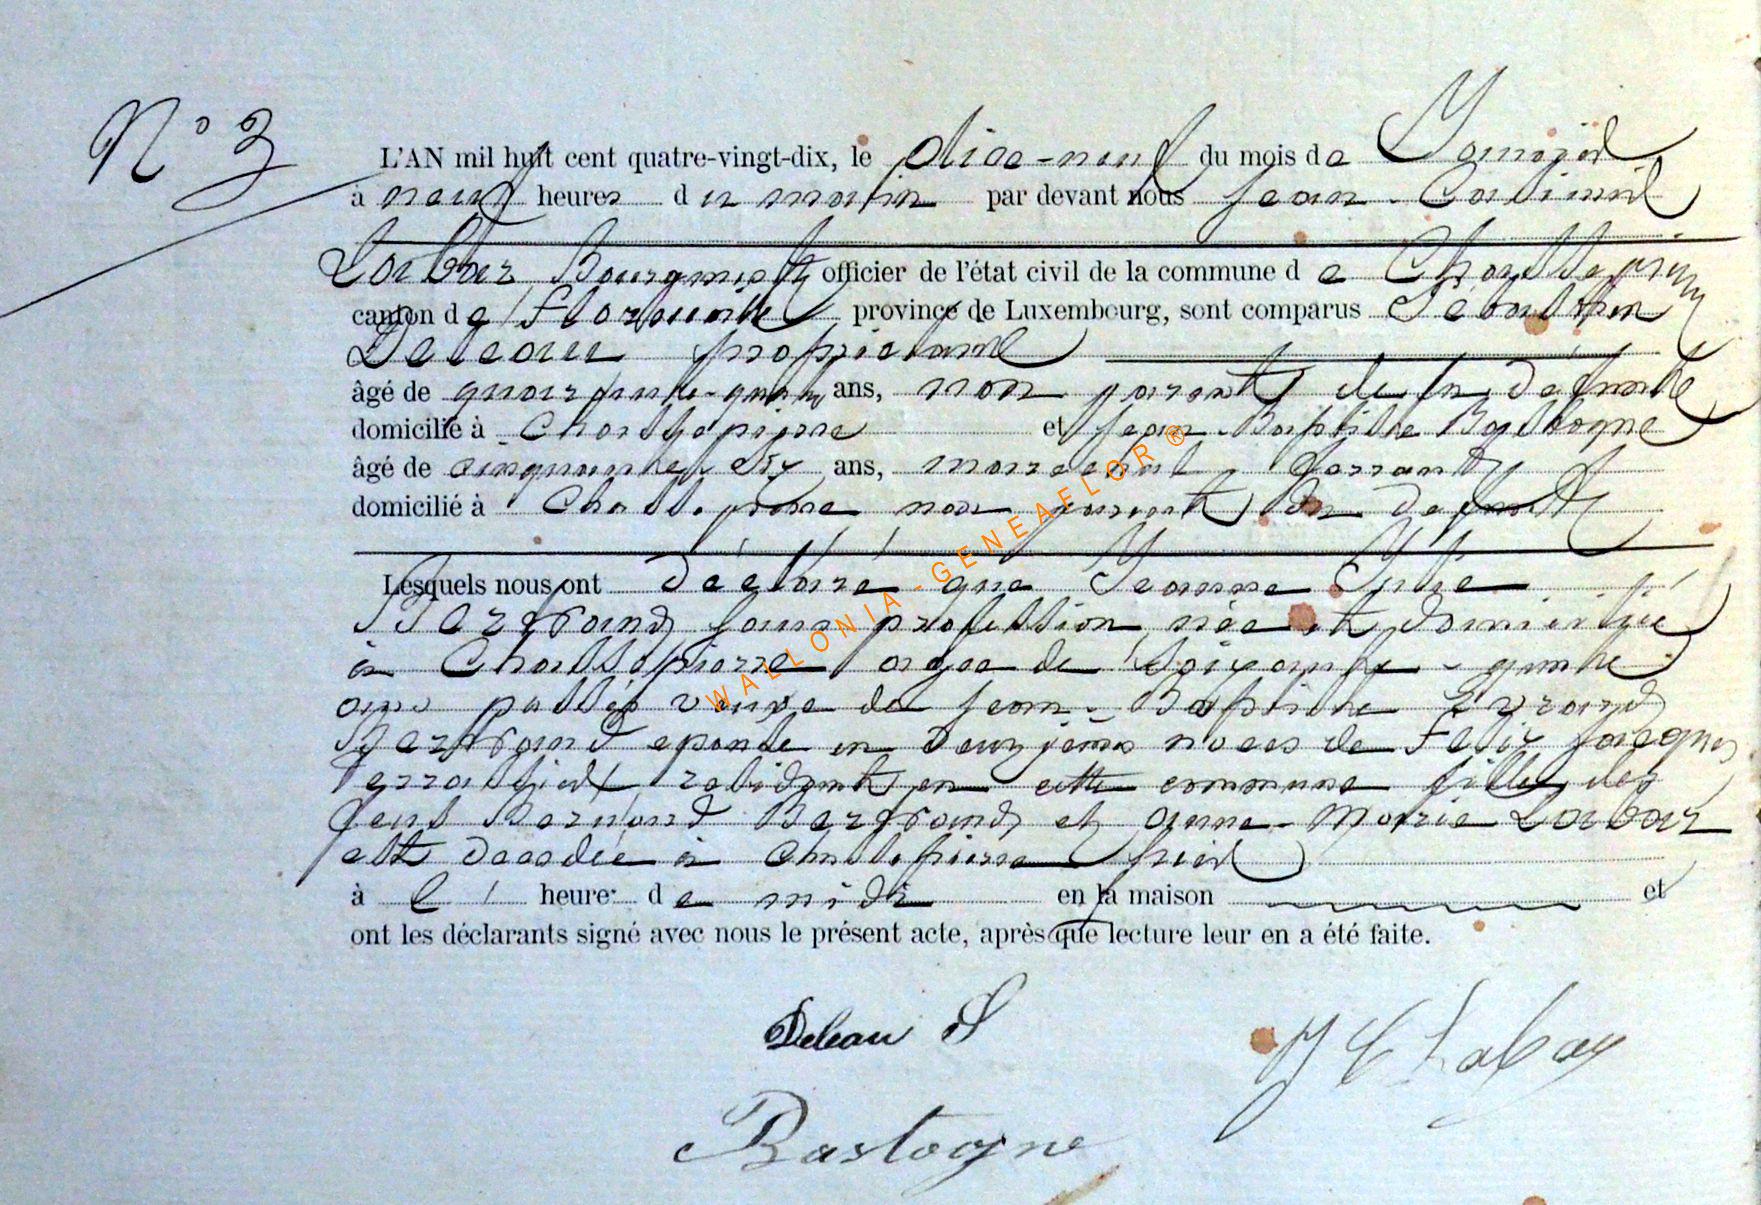 N° 3
L'AN mil huit cent quatre-vingt-dix, le dixe-neuf du mois de
à neuf heures du matin par devant nous Jean-Casimir
Labbaz Bourgmestre officier de l'état civil de la commune de Chassepierre
canton de florenville province de Luxembourg, sont comparus Sébastien
Deleau propriétaire
âgé de quarante-quatre ans, non parent de la défunte
domicilié à Chassepierre et Jean-Baptiste Bastogne
âgé de cinquante-six ans, marechal ferrant
domicilié à Chassepierre non parent du defunt
Lesquels nous ont déclaré que Jeanne
sans profession née et domiciliée
à Chassepierre agee de soixante-quinze
ans passés veuve de Jean-Baptiste Evrard
epouse en deuxjemes noces de Felix Jacques
residant en cette commune fille des
feus Bernard et anne-Marie Labbaz
est decedée à Chassepierre hier
à l' heure de midi en la maison et
ont les déclarants signé avec nous le présent acte, après que lecture leur en a été faite.
Deleau S
J C Labbay
Bastogne
WALLONIA-GENEAFLOR ®